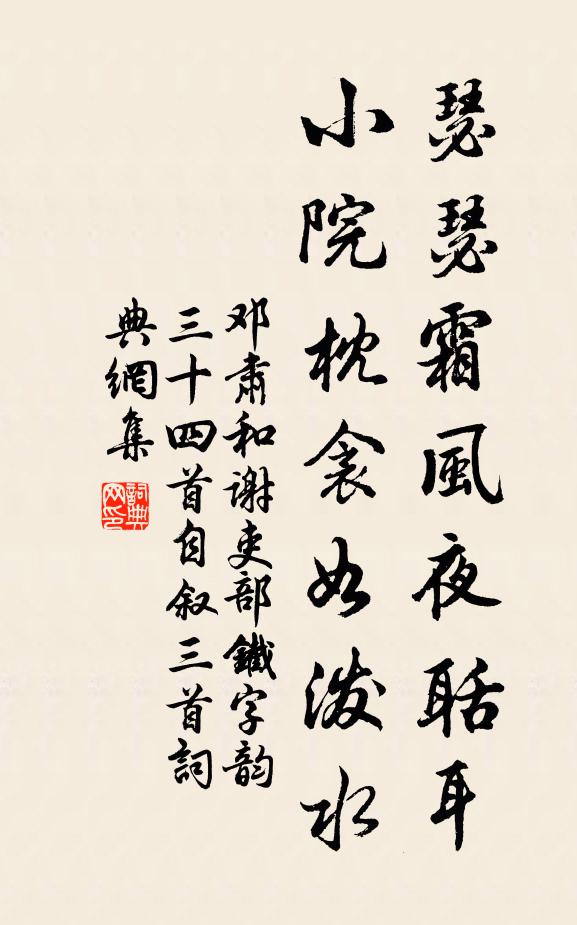 瑟瑟霜風夜聒耳
小院枕衾如潑水
邓肅和謝吏部鐵字韵
三十四首自叙三首詞
典網集
詞典网印